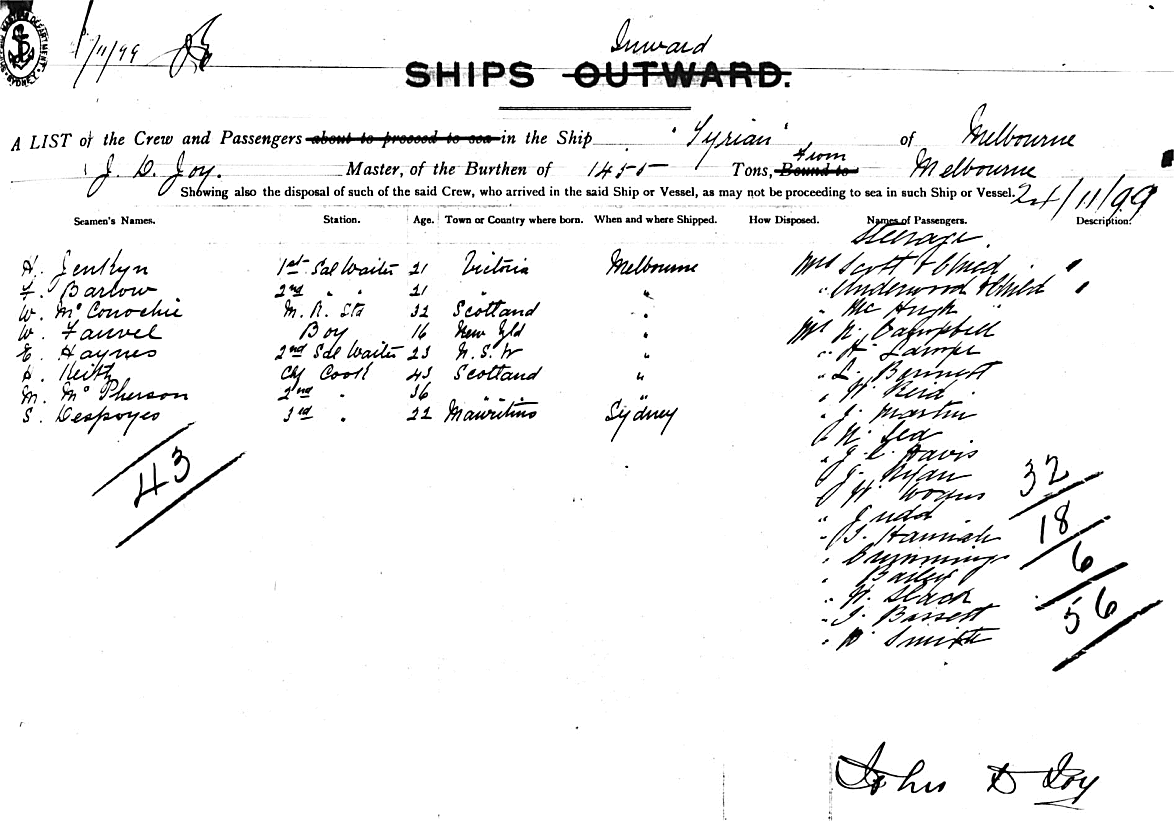 SHIPPING MASTER'S DEPARTMENT SYDNEY
/11/99
Inward
SHIPS OUTWARD.
A LIST of the Crew and Passengers about to proceed to sea in the Ship "Syrian" of Melbourne
J. D. Joy. Master, of the Burthen of 1455 Tons, Bound to from Melbourne
Showing also the disposal of such of the said Crew, who arrived in the said Ship or Vessel, as may not be proceeding to sea in such Ship or Vessel. 24/11/99
Seamen's Names. Station. Age. Town or Country where born. When and where Shipped. How Disposed. Names of Passengers. Description.
Steerage.
H. Jenkyn 1st Sal Waiter 21 Victoria Melbourne Mrs Scott & Child
F. Barlow 2nd " " 21 " " Underwood & Child
W. McConochie M. R. Std 32 Scotland " " McHugh
W. Fauvel Boy 16 New Zld " Mr N. Campbell
E. Haynes 2nd Sal Waiter 23 N.S.W " " H.
Keith Chf Cook 43 Scotland " " Bennett
M. McPherson 2nd " 36 " " " W. Reid
S. Despoyes 3rd " 22 Mauritius Sydney " J. Martin
"
" J. C. Davis
43
" J. Ryan 32
" W.
" Judd 18
" Hannah
" 6
" Bailey
" W. Slack
" Bassett 56
" Smith
John D Joy